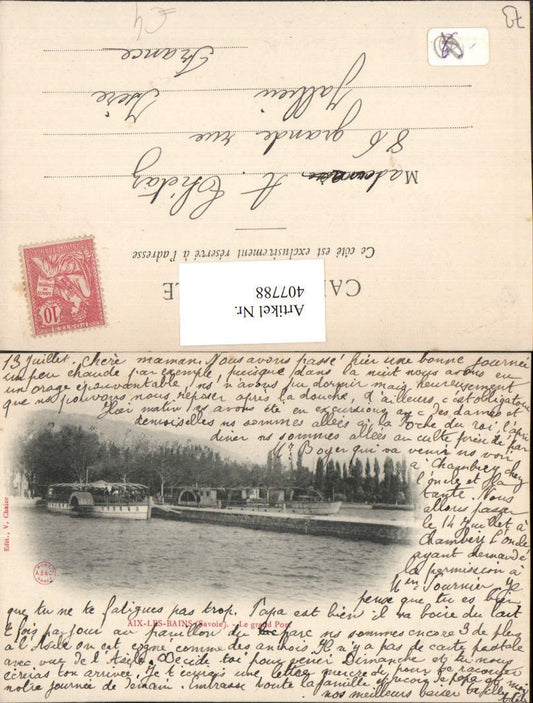 €4
CARTE POSTALE
Ce côté est exclusivement réservé à l'adresse
Artikel Nr.
407788
10
A.
86 grande rue
Jallieu Isère
France
13 Juillet. Chère maman. Nous avons passé hier une bonne journée
un peu chaude par exemple! puisque dans la nuit nous avons eu
un orage épouvantable, ns n'avons pu dormir mais heureusement
que ns pouvons nous reposer après la douche, d'ailleurs, c'est obligatoire
Hier matin, ns avons été en excursion avec des dames et
demoiselles ns sommes allées à la Roche du roi, l'après
diner ns sommes allées au culte
Boyer qui va venir ns voir
à Chambéry chez
l'oncle et la
tante. Nous
allons passer
le 14 Juillet à
Chambéry L'oncle
ayant demandé
la permission à
Mm Fournier
pense que tu es bien
que tu ne te fatigues pas trop. Papa est bien il va boire du lait
2 fois par jour au pavillon du parc ns sommes encore 3 de plus
à l'Asile on est comme des Il n'y a pas de carte postale
avec vue de l'Asile. Décide toi pour venir Dimanche et tu nous
écriras ton arrivée. Je t'écrirai une lettre mercredi pour te raconter
notre journée de demain. Embrasse toute la famille
nos meilleurs baisers
AIX-LES-BAINS (Savoie). - Le grand Port
Edit., V. Chaize